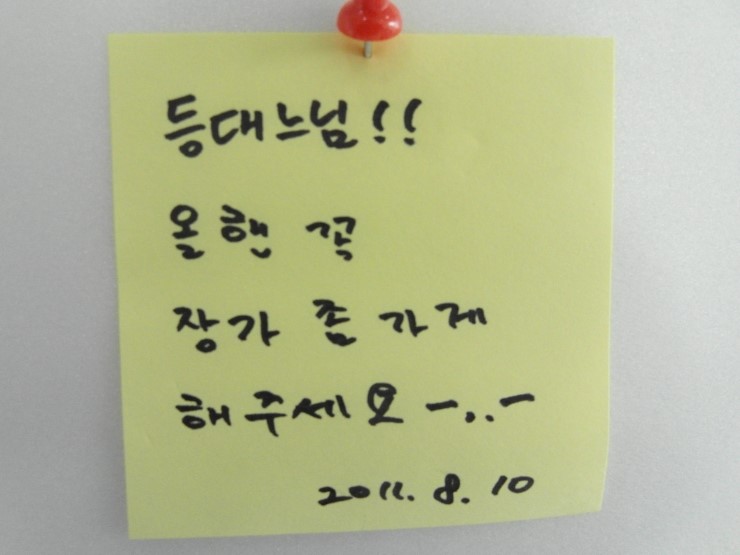 등대느님!!
올핸 꼭
장가 좀 가게
해주세요 -..-
2011. 8. 10